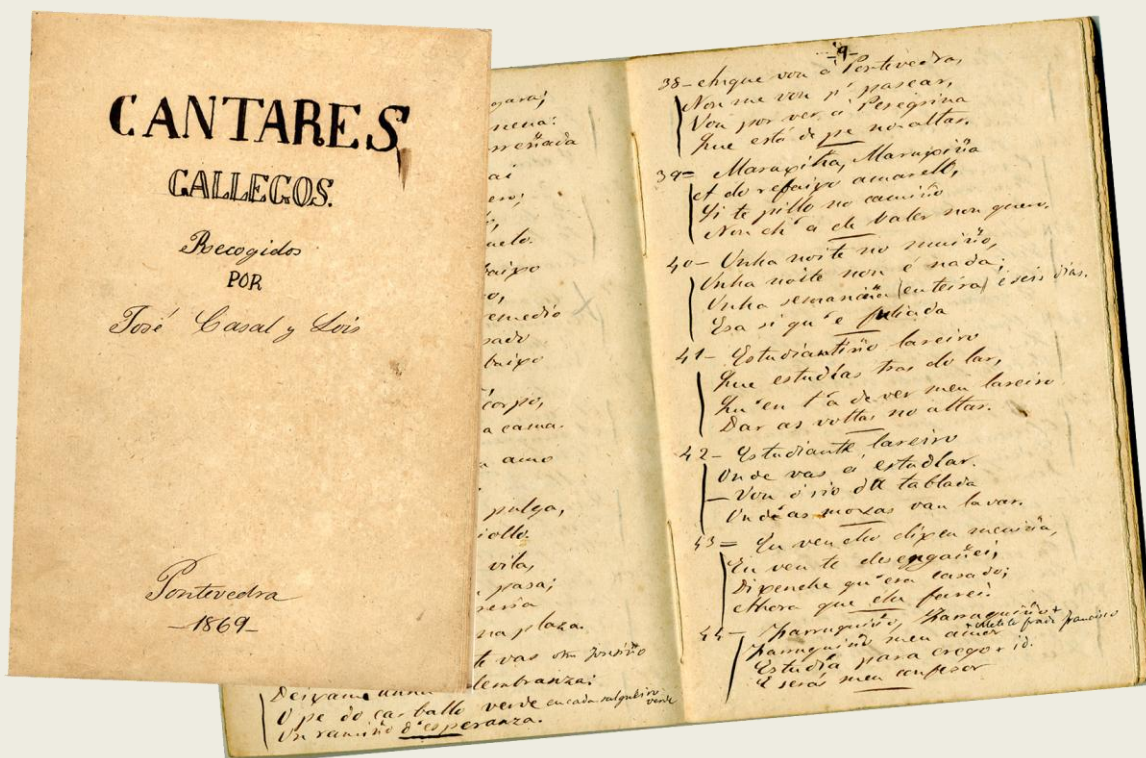 CANTARES
GALLEGOS.
Recogidos
POR
José Casal y Lois
Pontevedra
-1869-
nena:
ai
baixo
remedio
baixo
corpo,
a cama.
amo
pulga,
vila,
pasa;
na plaza.
te vas
Deixame unha lembranza:
O pe do carballo verde en cada salgueiro verde
Un ramiño d'esperanza.
-9-
38- vou á Pontevedra,
Non me vou p' pasear,
Vou por ver á Peregrina
Que está de pe no altar.
39= Maruxiña, Maruxiña
A do refaixo amarelo,
Si te pillo no camiño
Non ch'a de valer non quero.
40- Unha noite no muiño,
Unha noite non é nada;
Unha semaniña (enteira) é seis días.
Esa si qu'e fuliada
41- Estudiantiño lareiro
Que estudias tras do lar,
Qu'eu t'a de ver meu lareiro
Dar as voltas no altar.
42- Estudiante lareiro
Onde vas a estudiar.
- Vou ó rio da tablada
Onde as mozas van lavar.
43= Eu ven cho dixen meniña,
Eu ven te desengañei,
Dixenche qu'era casado;
Ahora que che farei.
44- Farruquiño, Farruquiño +
Farruquiño meu amor + frade francisco
Estudia para crego + id.
E serás meu confesor